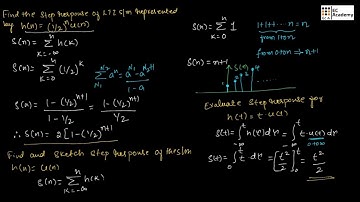 Find the Step Response of LTI S/m represented
by h(n) = (1/2)^n u(n)
S(n) = Σ_{k=-∞}^{n} h(k)
S(n) = Σ_{k=0}^{n} (1/2)^k
Σ_{N1}^{N2} a^n = (a^{N1} - a^{N2+1})/(1-a)
= (1 - (1/2)^{n+1})/(1 - 1/2) = (1 - (1/2)^{n+1})/(1/2)
∴ S(n) = 2[1 - (1/2)^{n+1}]
Find and sketch Step Response of the s/m
h(n) = u(n)
S(n) = Σ_{k=-∞}^{n} h(k)
S(n) = Σ_{k=0}^{n} 1
1+1+ - - - 1 = n
from 1 to n
from 0 to n → n+1
S(n) = n+1
S(n)
Evaluate Step Response for
h(t) = t·u(t)
S(t) = ∫_{-∞}^{t} h(τ)dτ = ∫_{-∞}^{t} τ·u(τ)dτ
0 to ∞
S(t) = ∫_{0}^{t} τ·dτ = [τ²/2]_{0}^{t} = t²/2
EC Academy